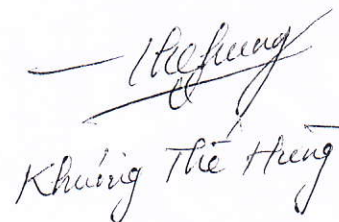 Thế Hưng
Khương Thế Hưng